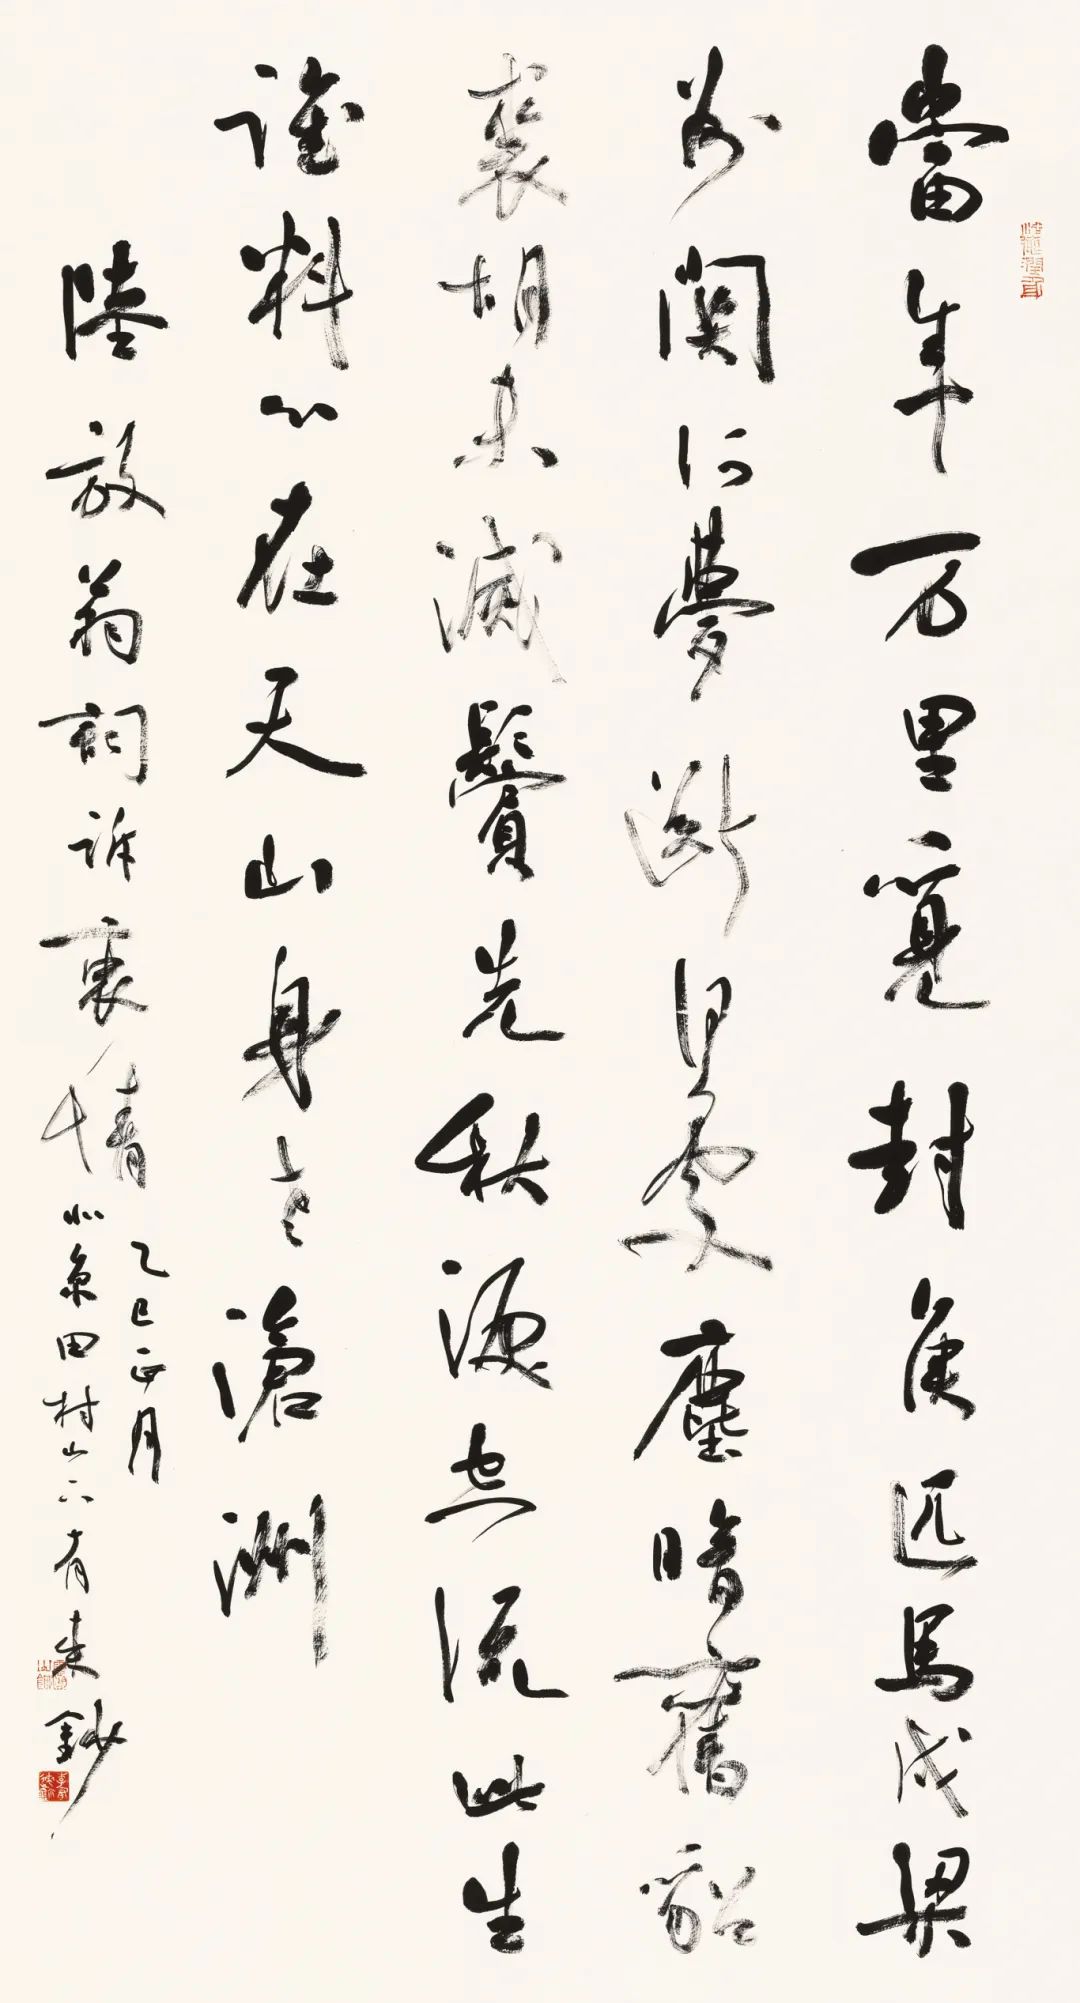 當年万里覓封侯匹馬戍梁
州関河夢斷何處塵暗舊貂
裘胡未滅鬢先秋淚空流此生
誰料心在天山身老滄洲
陸放翁詞訴衷情
乙巳正月
北京田村山 有 鈔